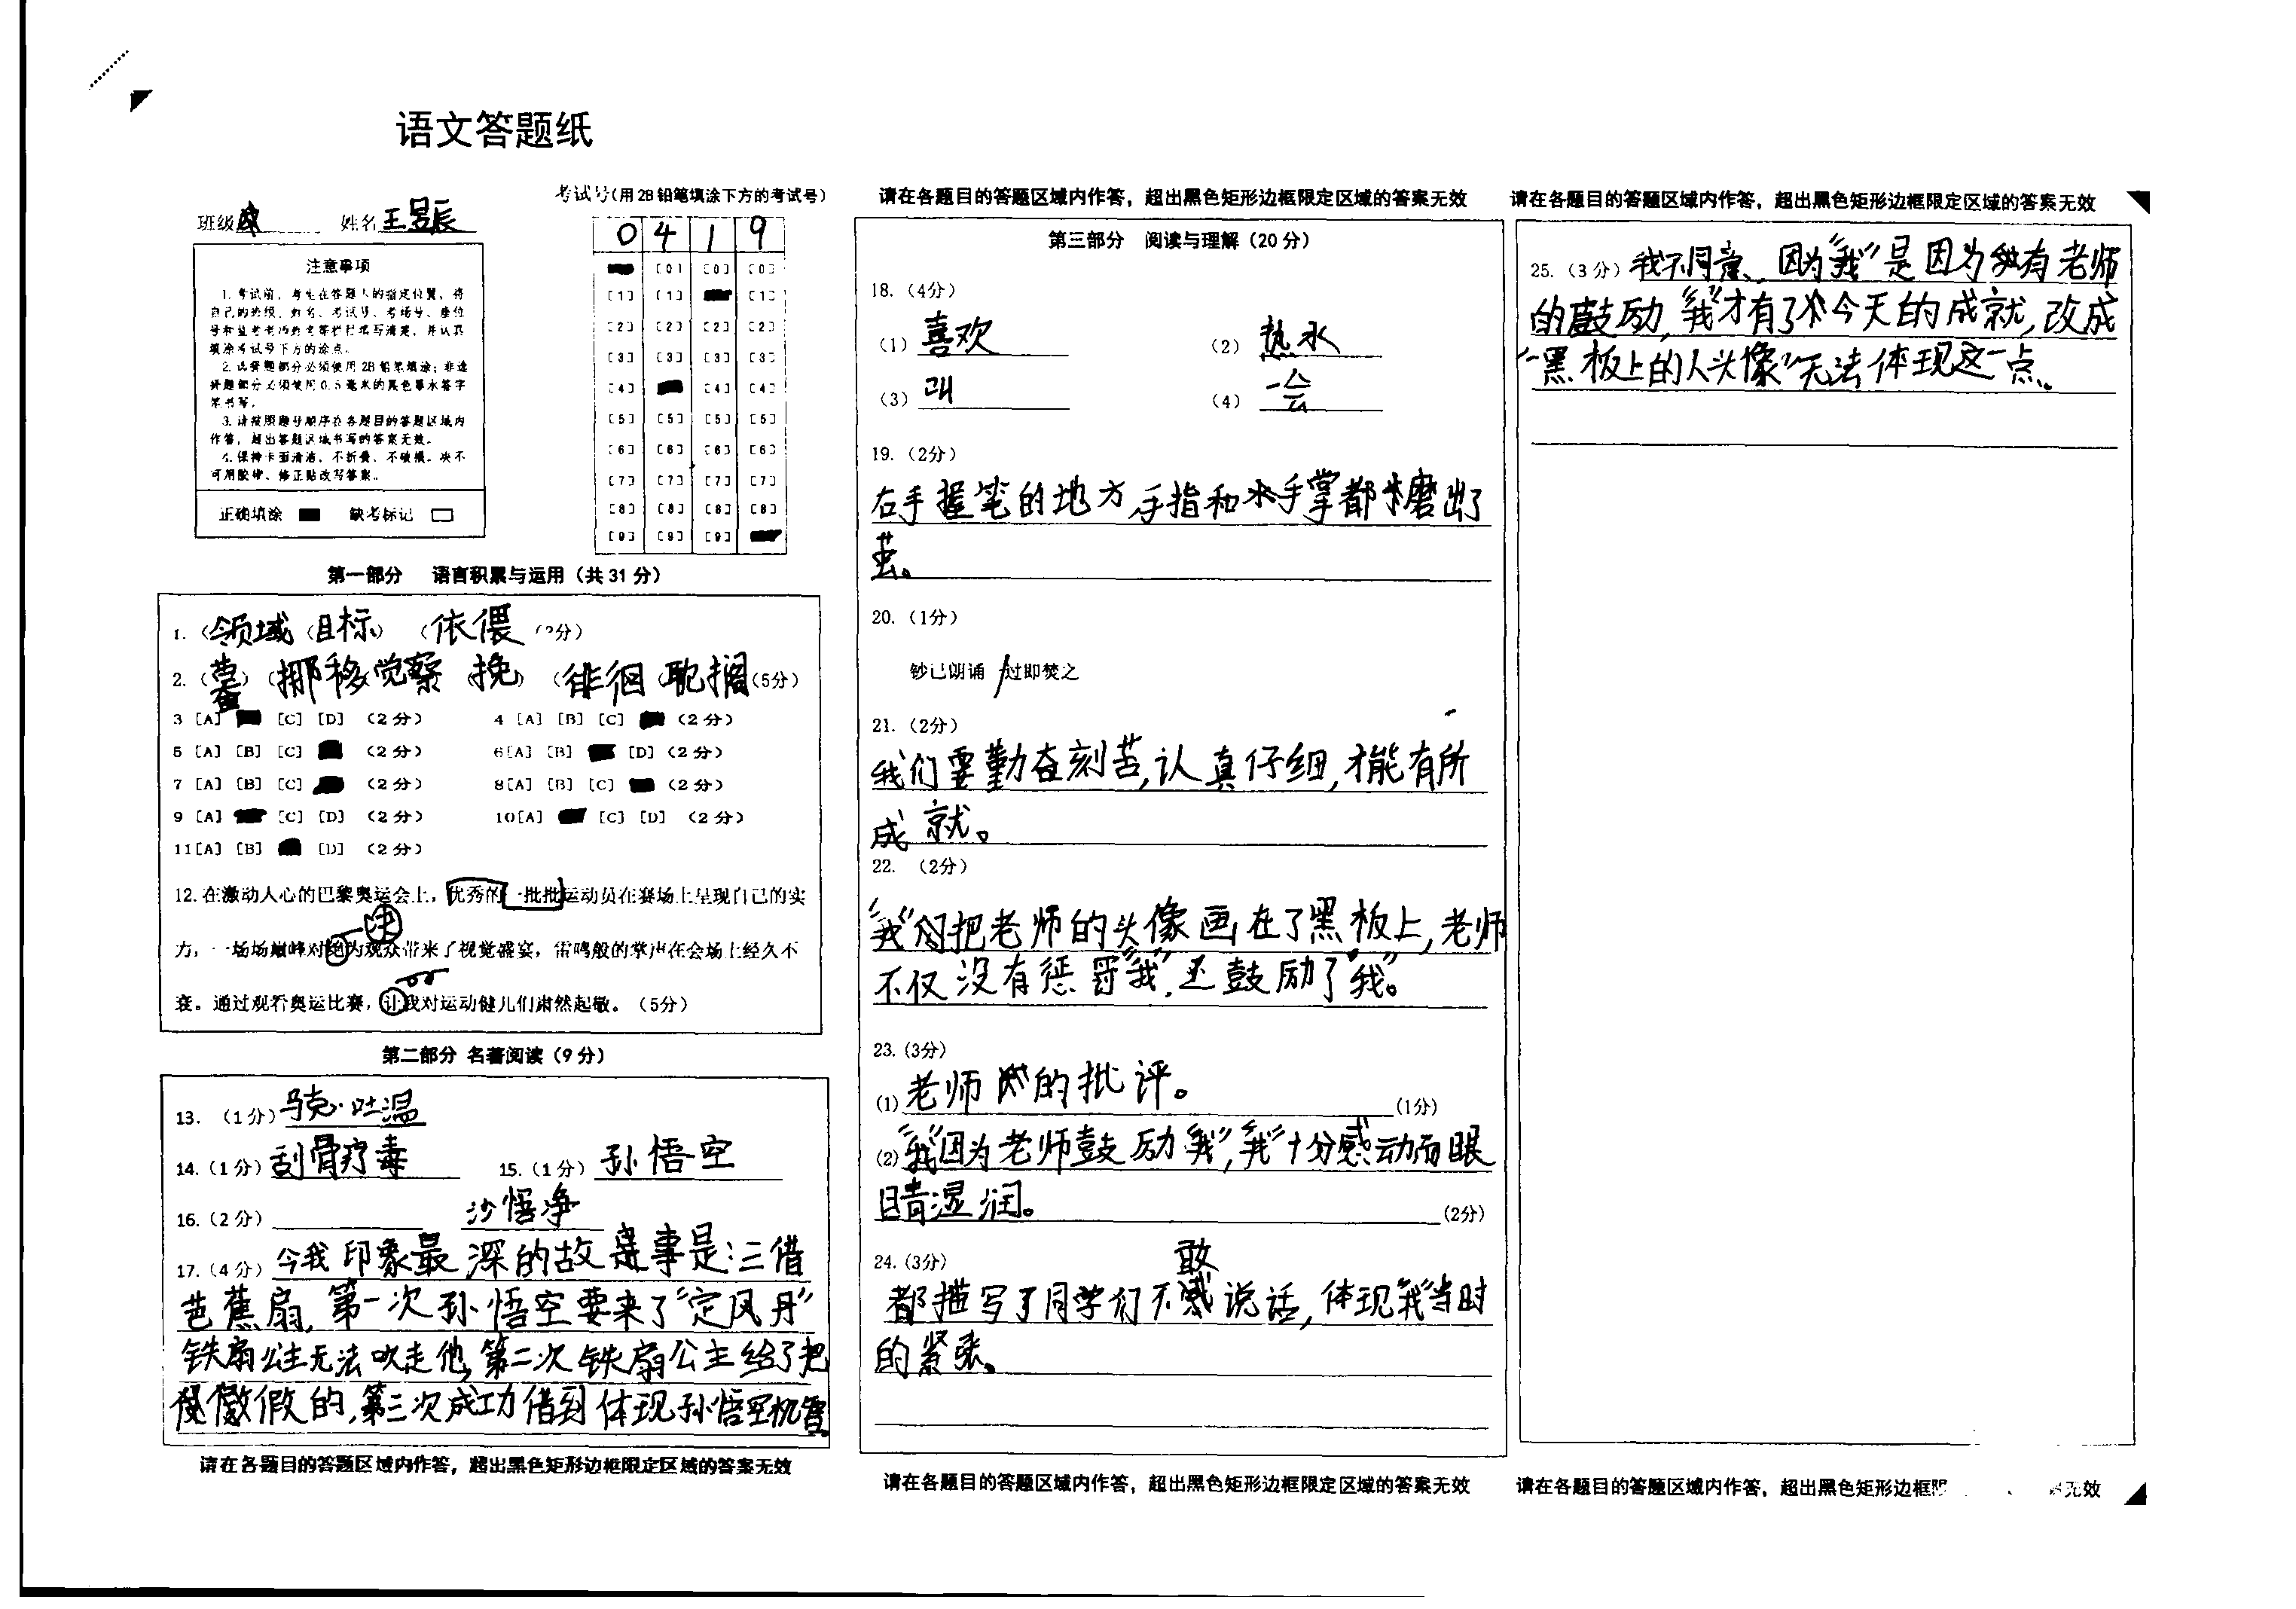 语文答题纸
班级 姓名 王昱辰
考试号(用 2B 铅笔填涂下方的考试号)
0 4 1 9
注意事项
1. 考试前，考生在答题卡的指定位置，将
自己的班级、姓名、考试号、考场号、座位
号和监考老师姓名等栏目填写清楚，并认真
填涂考试号下方的涂点。
2. 选择题部分必须使用 2B 铅笔填涂；非选
择题部分必须使用 0.5 毫米的黑色墨水签字
笔书写。
3. 请按照题号顺序在各题目的答题区域内
作答，超出答题区域书写的答案无效。
4. 保持卡面清洁，不折叠、不破损。决不
可用胶带、修正贴改写答案。
正确填涂 缺考标记
[0] [0] [0]
[1] [1] [1]
[2] [2] [2] [2]
[3] [3] [3] [3]
[4] [4] [4]
[5] [5] [5] [5]
[6] [6] [6] [6]
[7] [7] [7] [7]
[8] [8] [8] [8]
[9] [9] [9]
第一部分 语言积累与运用（共 31 分）
1.（领域（目标）（依偎 分）
2.（蓦）（挪移 觉察 挽）（徘徊 耽搁（5分）
3 [A] [C] [D] （2 分） 4 [A] [B] [C] （2 分）
5 [A] [B] [C] （2 分） 6[A] [B] [D]（2 分）
7 [A] [B] [C] （2 分） 8[A] [B] [C] （2 分）
9 [A] [C] [D] （2 分） 10[A] [C] [D] （2 分）
11[A] [B] [D] （2 分）
12. 在激动人心的巴黎奥运会上，优秀的一批批运动员在赛场上呈现自己的实
决
方，一场场巅峰对绝为观众带来了视觉盛宴，雷鸣般的掌声在会场上经久不
衰。通过观看奥运比赛，让我对运动健儿们肃然起敬。（5分）
第二部分 名著阅读（9 分）
13. （1 分）马克·吐温
14.（1 分）刮骨疗毒 15.（1 分）孙悟空
16.（2 分） 沙悟净
17.（4 分）令我印象最深的故事是:三借
芭蕉扇，第一次孙悟空要来了“定风丹”
铁扇公主无法吹走他，第二次铁扇公主给了把
假的，第三次成功借到 体现孙悟空机智
请在各题目的答题区域内作答，超出黑色矩形边框限定区域的答案无效
请在各题目的答题区域内作答，超出黑色矩形边框限定区域的答案无效
第三部分 阅读与理解（20 分）
18.（4分）
（1）喜欢 （2）热水
（3）叫 （4）会
19.（2分）
右手握笔的地方，手指和手掌都磨出了
茧。
20.（1分）
钞已朗诵/过即焚之
21.（2分）
我们要勤奋刻苦，认真仔细，才能有所
成就。
22. （2分）
“我”把老师的头像画在了黑板上，老师
不仅没有惩罚“我”，还鼓励了“我”。
23.（3分）
(1)老师的批评。 (1分)
(2)“我”因为老师鼓励“我”，“我”十分感动而眼
睛湿润。 (2分)
24.（3分） 敢
都描写了同学们不说话，体现“我”当时
的紧张。
请在各题目的答题区域内作答，超出黑色矩形边框限定区域的答案无效
请在各题目的答题区域内作答，超出黑色矩形边框限定区域的答案无效
25.（3 分）我不同意，因为“我”是因为有老师
的鼓励，“我”才有了今天的成就，改成
“黑板上的人头像”无法体现这一点。
请在各题目的答题区域内作答，超出黑色矩形边框限 无效